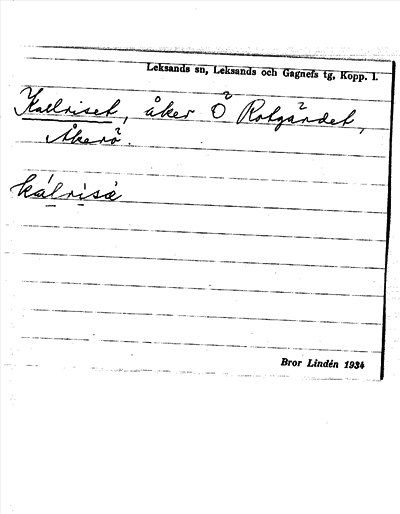 Leksands sn, Leksands och Gagnefs tg, Kopp. l.
Kallriset, åker Ö Rotgärdet,
Åkerö.
kálrisä
Bror Lindén 1934